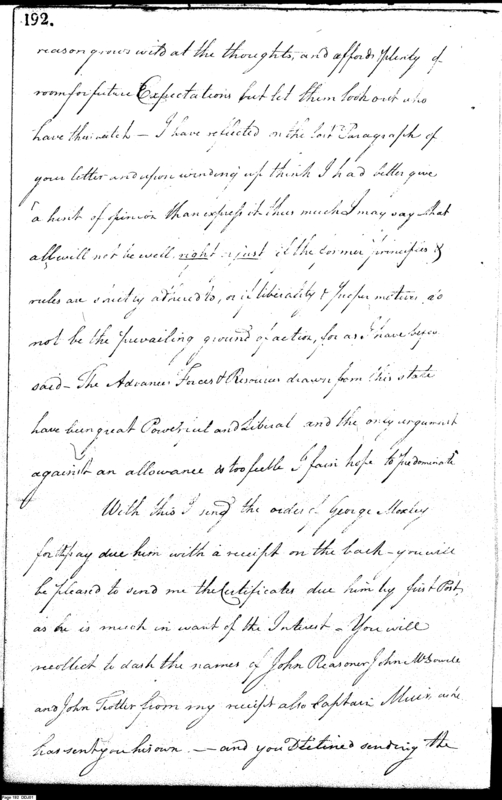 192.
reason grows wild at the thoughts, and affords plenty of
room for future Expectations but let them look out who
have the watch – I have reflected on the last Paragraph of
your letter and upon winding up think I had better give
a hint of opinion than express it thus much I may say that
all will not be well right & just if the former principles &
rules are strictly adhered to, or if liberality & proper motives do
not be the prevailing ground of action, for as I have before
said – The Advances Forces & Resources drawn from this state
have been great Powerful and Liberal and the only argument
against an allowance is too feeble I fain hope to predominate
With this I send the order of George Moxley
for his pay due him with a receipt on the back – you will
be pleased to send me the Certificates due him by first Post,
as he is much in want of the Interest – You will
recollect to dash the names of John Reasoner John
and John Trotter from my receipt also Captain Muir, as he
has sent you his own – and you Declined sending the
Page 192 DDJ01